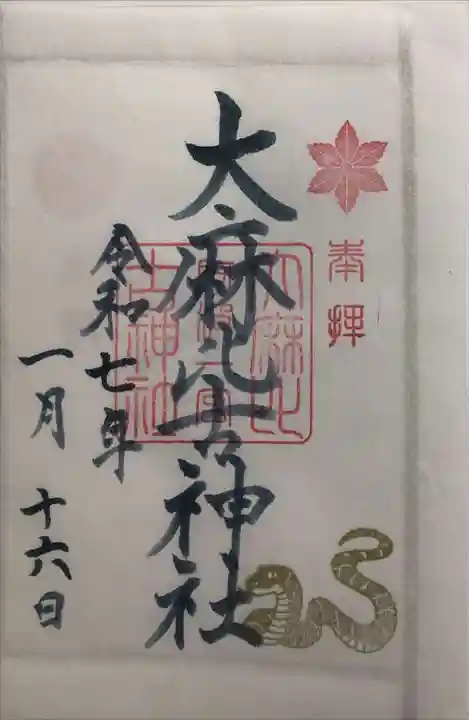 奉拝
大麻比古神社
大麻比
古神社
令和七年
一月十六日